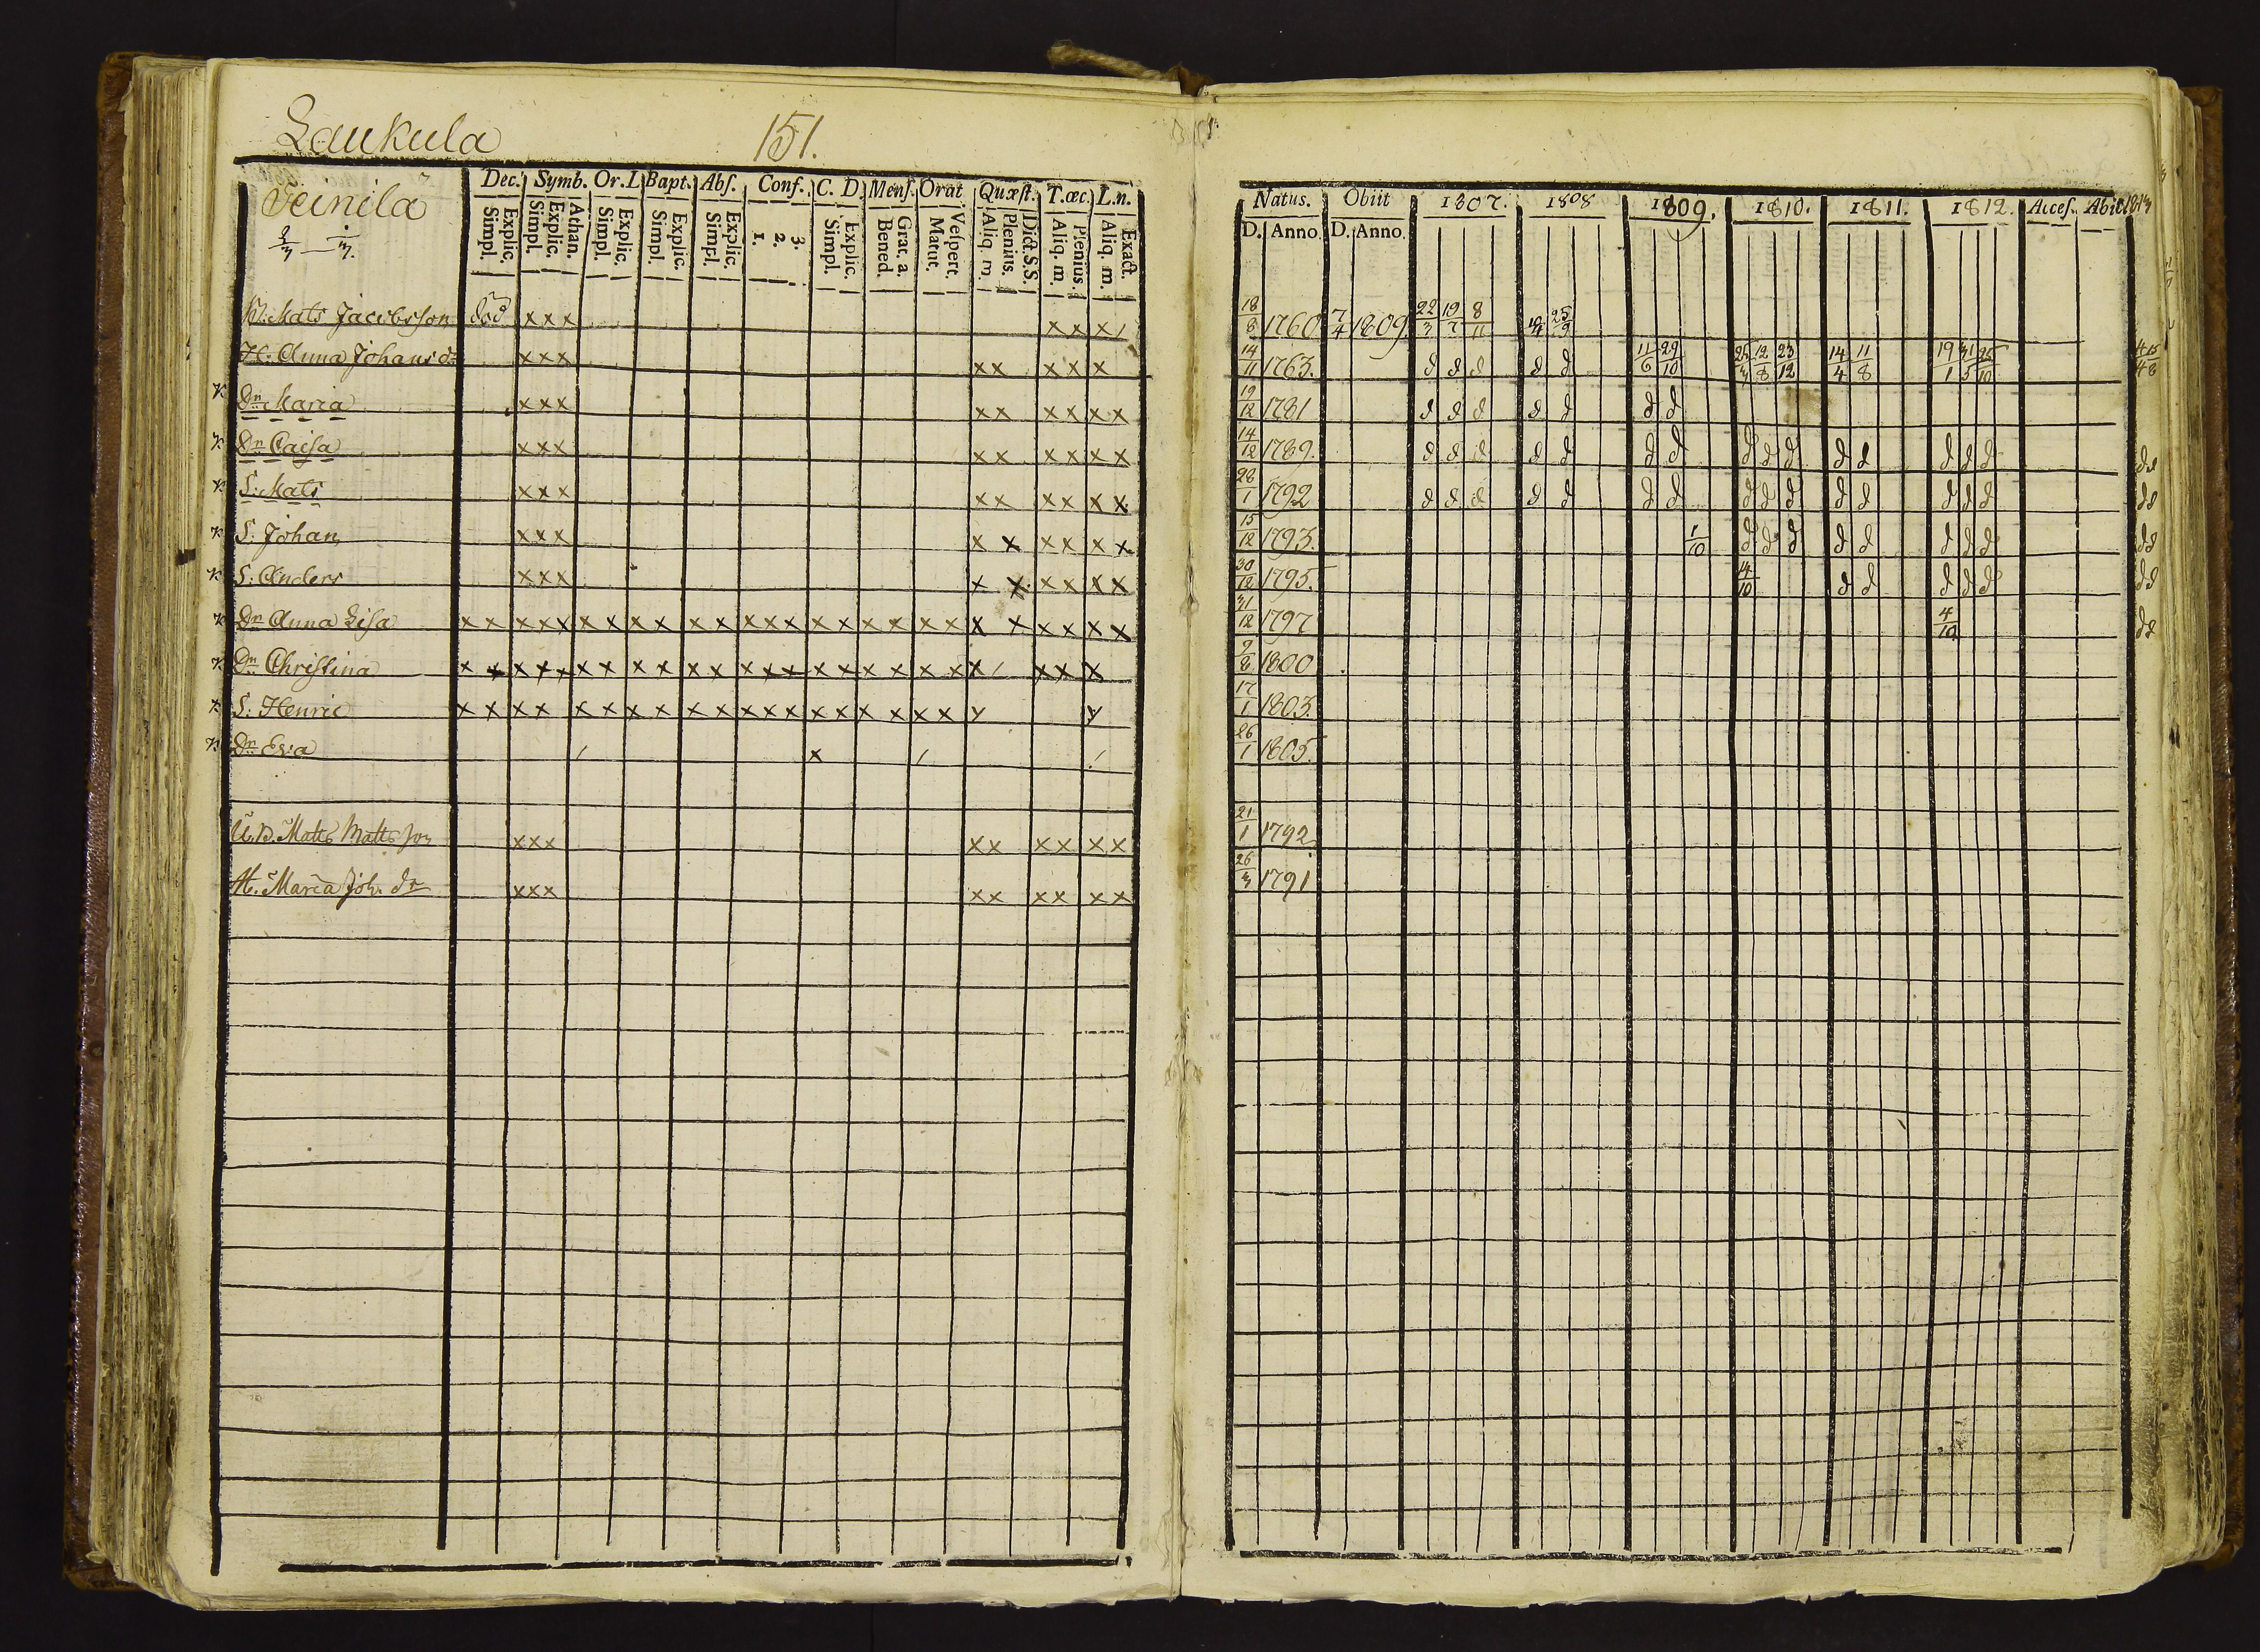 Laukula 151.
Dec. Symb. Or. L. Bapt. Abſ. Conf. C. D. Menſ. Orat. Quæſt. T. œc. L. n.
Explic. Simpl. Athan. Explic. Simpl. Explic. Simpl. Explic. Simpl. Explic. Simpl. 3. 2. 1. Explic. Simpl. Grat. a. Bened. Veſpert. Matut. Dict. S. S. Plenius. Aliq. m. Plenius. Aliq. m. Exact. Aliq. m.
Mats Jacobsson död x x x x x x /
H: Anna Johans dr x x x x x x x x
Dr. Maria x x x x x x x x x
Dr. Caisa x x x x x x x x x
S: Mats x x x x x x x x x
S. Johan x x x x x x x x x
S: Anders x x x x x x x x x
Dr. Anna Lisa x x x x x x x x x x x x x x x x x x x x x x x x x x
Dr. Christina x x x x x x x x x x x x x x x x x x x x / x x x
S: Henric x x x x x x x x x x x x x x x x x x x y y
Dr. Eva / x / /
Matts Matts son x x x x x x x x x
H. Maria Joh. dr x x x x x x x x x
Natus. Obiit 1807. 1808 1809. 1810. 1811. 1812. Acceſ. Abiit 1813
D. Anno. D. Anno.
18/8 1760 7/4 1809. 22/3 19/7 8/11 25/9
14/11 1763. d d d d d 11/6 29/10 12/8 23/12 14/4 11/8 19/1 31/5
19/12 1781 d d d d d d d
14/12 1789. d d d d d d d d d d d d d d d d d
28/1 1792 d d d d d d d d d d d d d d d d d
15/12 1793. 1/10 d d d d d d d d d d
30/12 1795. 14/10 d d d d d d d
31/12 1797 4/10 d d
9/8 1800
17/1 1803.
26/1 1805.
21/1 1792
26/3 1791